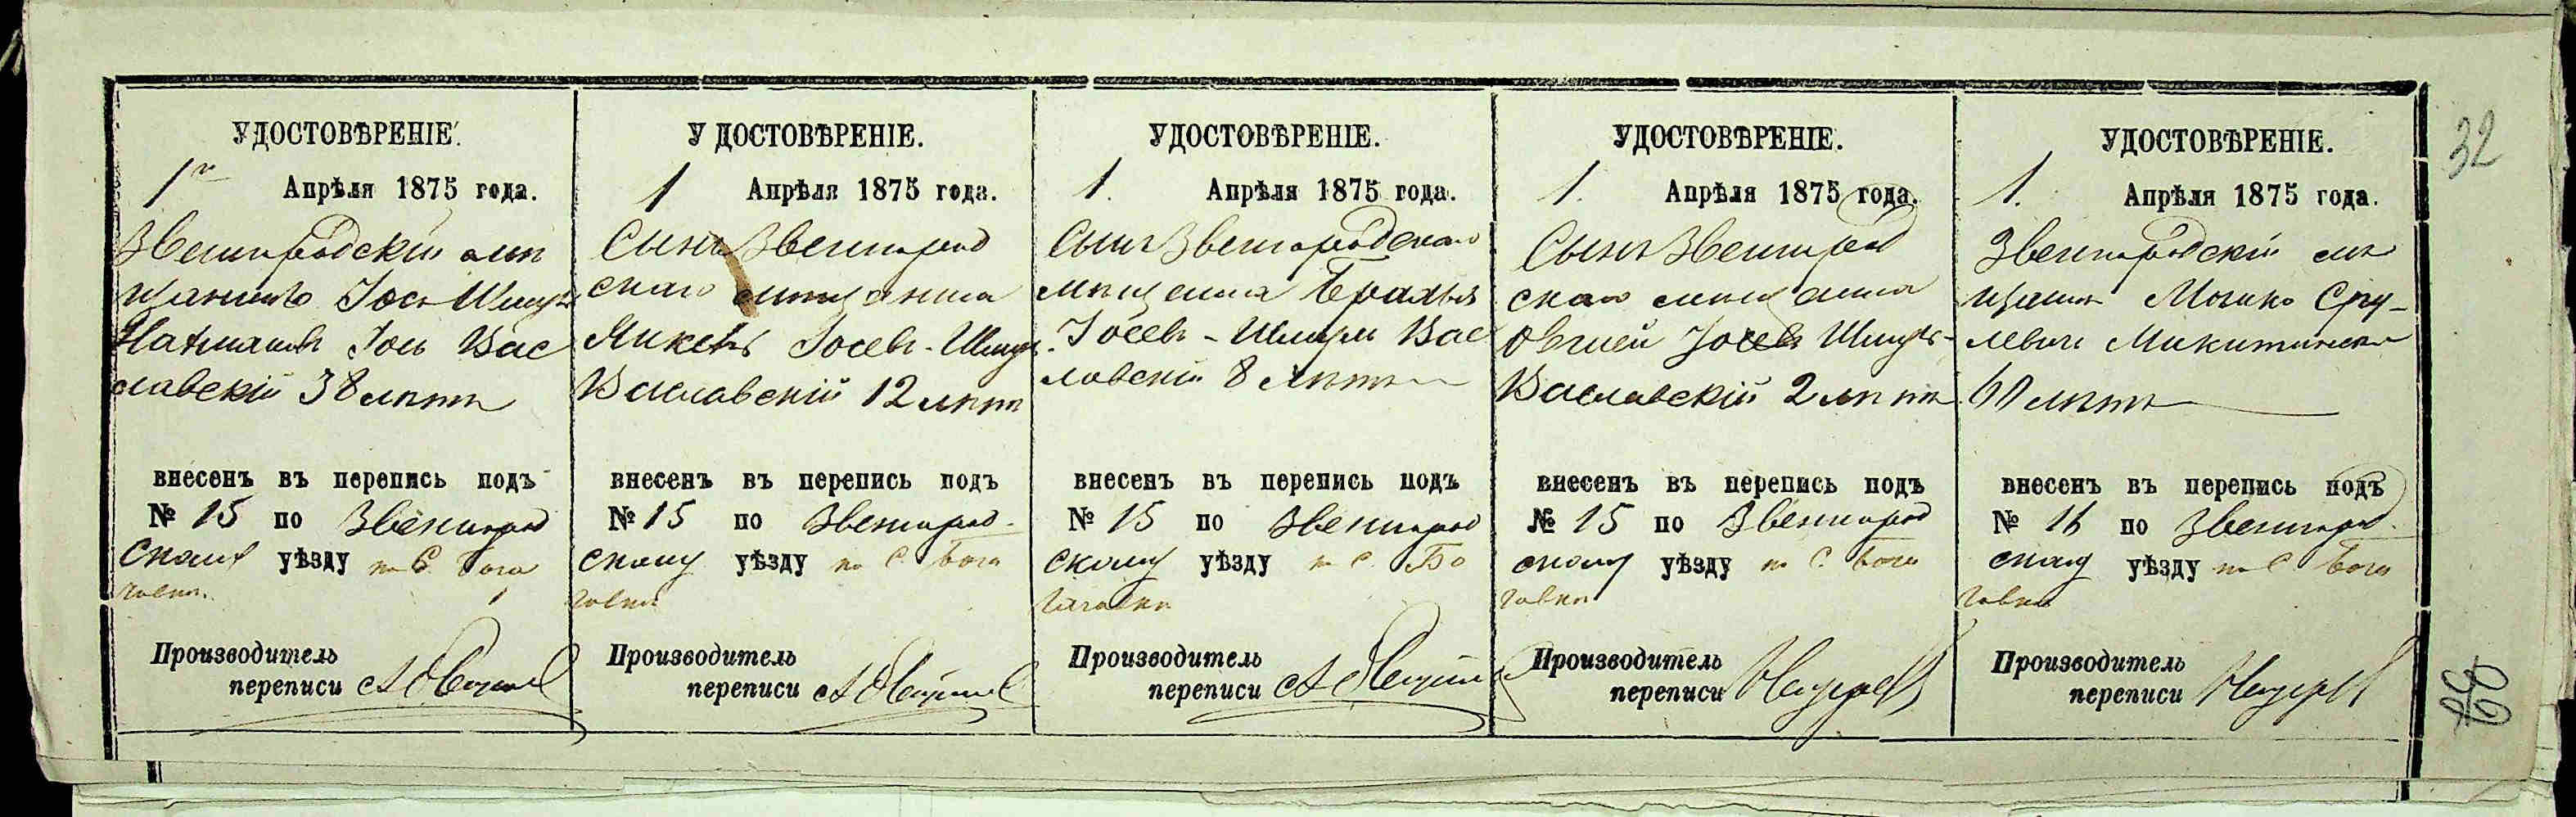 УДОСТОВѢРЕНІЕ.
1го Апрѣля 1875 года.
Звенигородскій мѣ
щанинъ Іось Шмуль
Іось Вас
лавскій 38 лѣтъ
внесенъ въ перепись подъ
№ 15 по Звенигород
скому уѣзду по с. Бога
чевки
Производитель
переписи
УДОСТОВѢРЕНІЕ.
1 Апрѣля 1875 года.
Сынъ Звенигород
скаго мѣщанина
Янкель Іосевъ-Шмуль
Ваславскій 12 лѣтъ
внесенъ въ перепись подъ
№ 15 по Звенигород-
скому уѣзду по с. Бога
чевки
Производитель
переписи
УДОСТОВѢРЕНІЕ.
1. Апрѣля 1875 года.
Сынъ Звенигородскаго
мѣщанина
Іосевъ-Шмуль Вас
лавскій 8 лѣтъ
внесенъ въ перепись подъ
№ 15 по Звенигород
скому уѣзду по с. Бо
гачевки
Производитель
переписи
УДОСТОВѢРЕНІЕ.
1. Апрѣля 1875 года.
Сынъ Звенигород
скаго мѣщанина
Овшей Іосевъ Шмуль-
Ваславскій 2 лѣтъ
внесенъ въ перепись подъ
№ 15 по Звенигород
скому уѣзду по с. Бога
чевки
Производитель
переписи
УДОСТОВѢРЕНІЕ.
1. Апрѣля 1875 года.
Звенигородскій мѣ
щанинъ Мошко Сру-
левичъ
60 лѣтъ
внесенъ въ перепись подъ
№ 16 по Звенигород-
скому уѣзду по с. Бога
чевки
Производитель
переписи
32